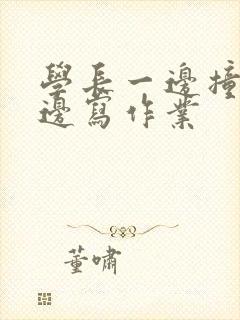 學長一邊撞
邊寫作業
董嘯